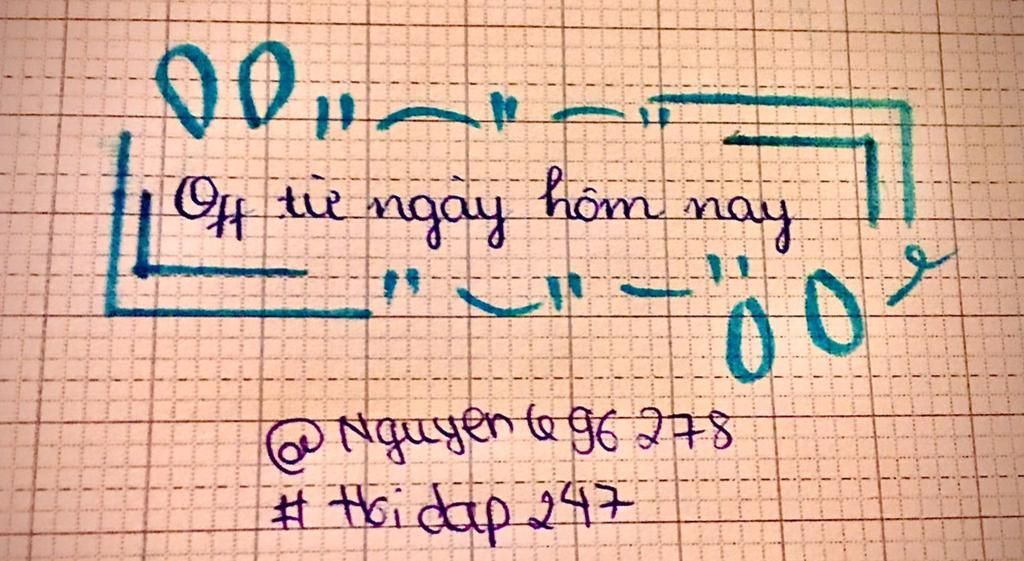 Off từ ngày hôm nay
@Nguyen696278
# Hoidap247